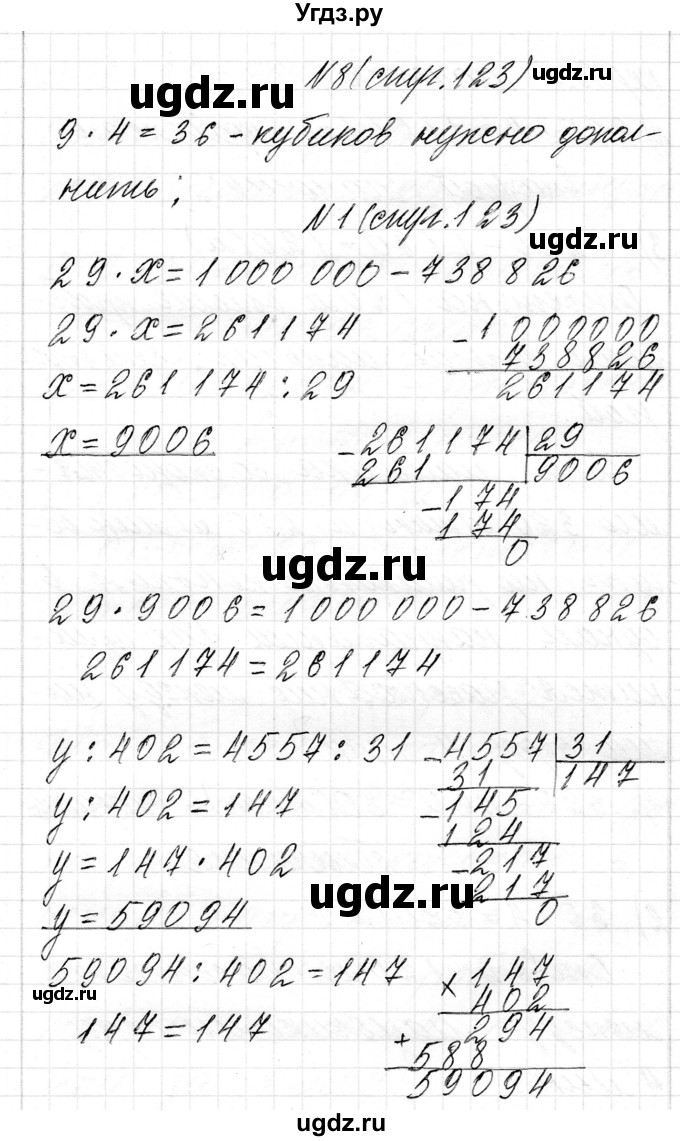 Угдз.ру
№8(стр.123)
ugdz.ru
ugdz.ru
9·4=36-кубиков нужно допол-
нить;
№1(стр.123)
ugdz.ru
29·x=1000 000-738 826
29·x=261174
x=261 174:29
x=9006
-1000000
738826
261174
-261174 29
261 9006
-174
174
0
ugdz.ru
29·9006=1000 000-738 826
261174=261174
y:402=4557:31
y:402=147
y=147·402
y=59094
-4557 31
31 147
-145
124
-217
217
0
ugdz.ru
59094:402=147
ugdz.ru
147=147
×147
402
294
+588
59094
ugdz.ru
ugdz.ru